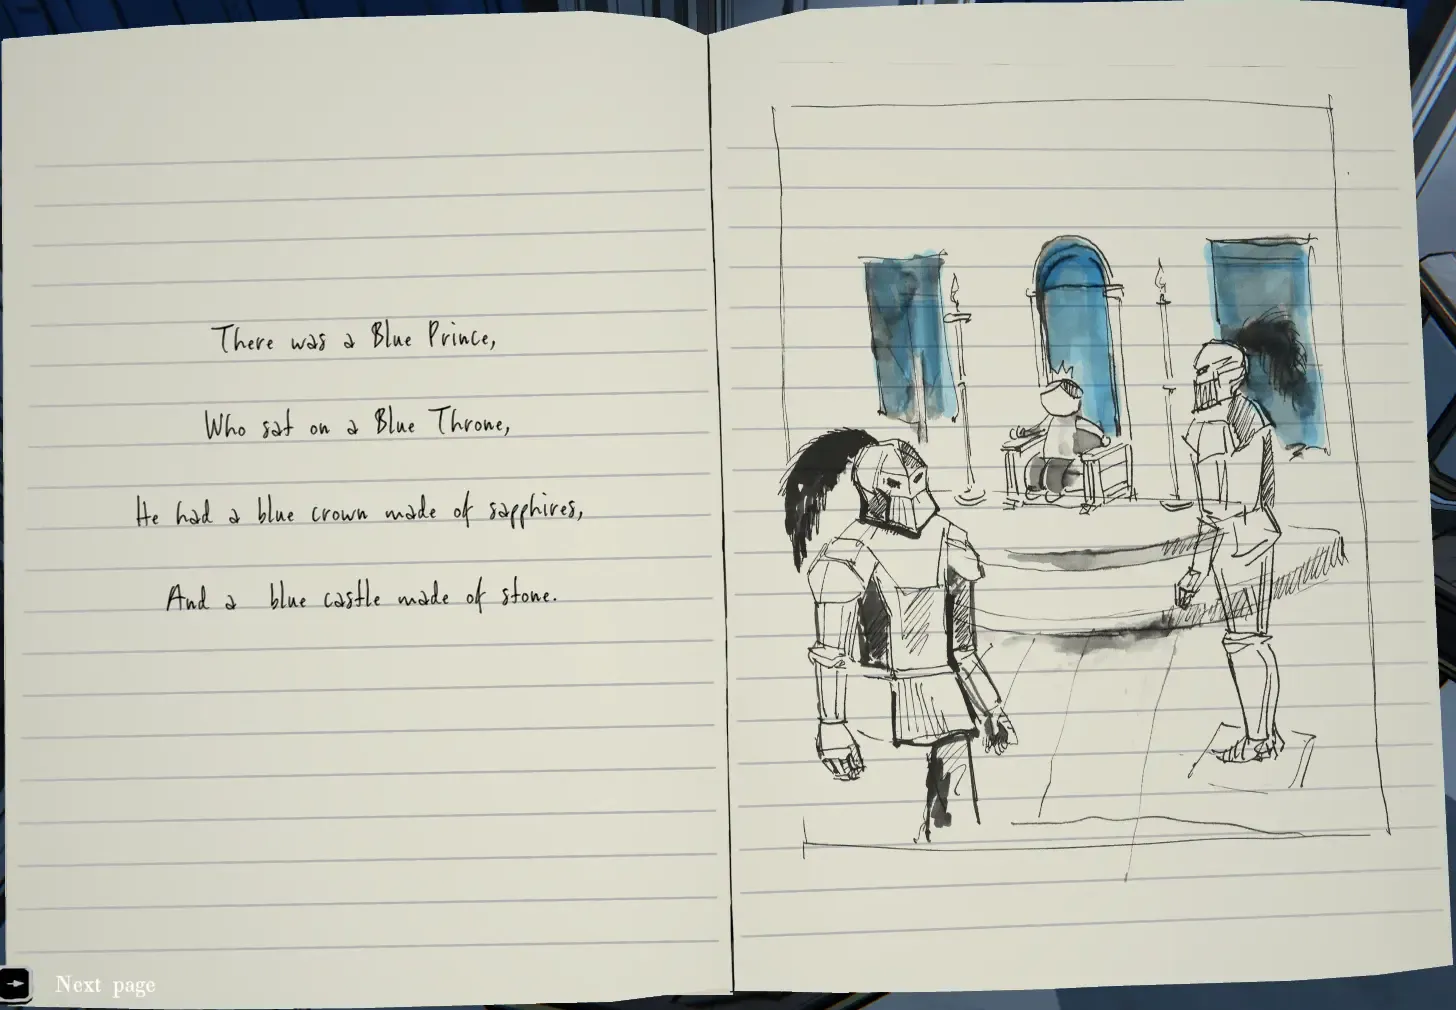 There was a Blue Prince,
Who sat on a Blue Throne,
He had a blue crown made of sapphires,
And a blue castle made of stone.
Next page